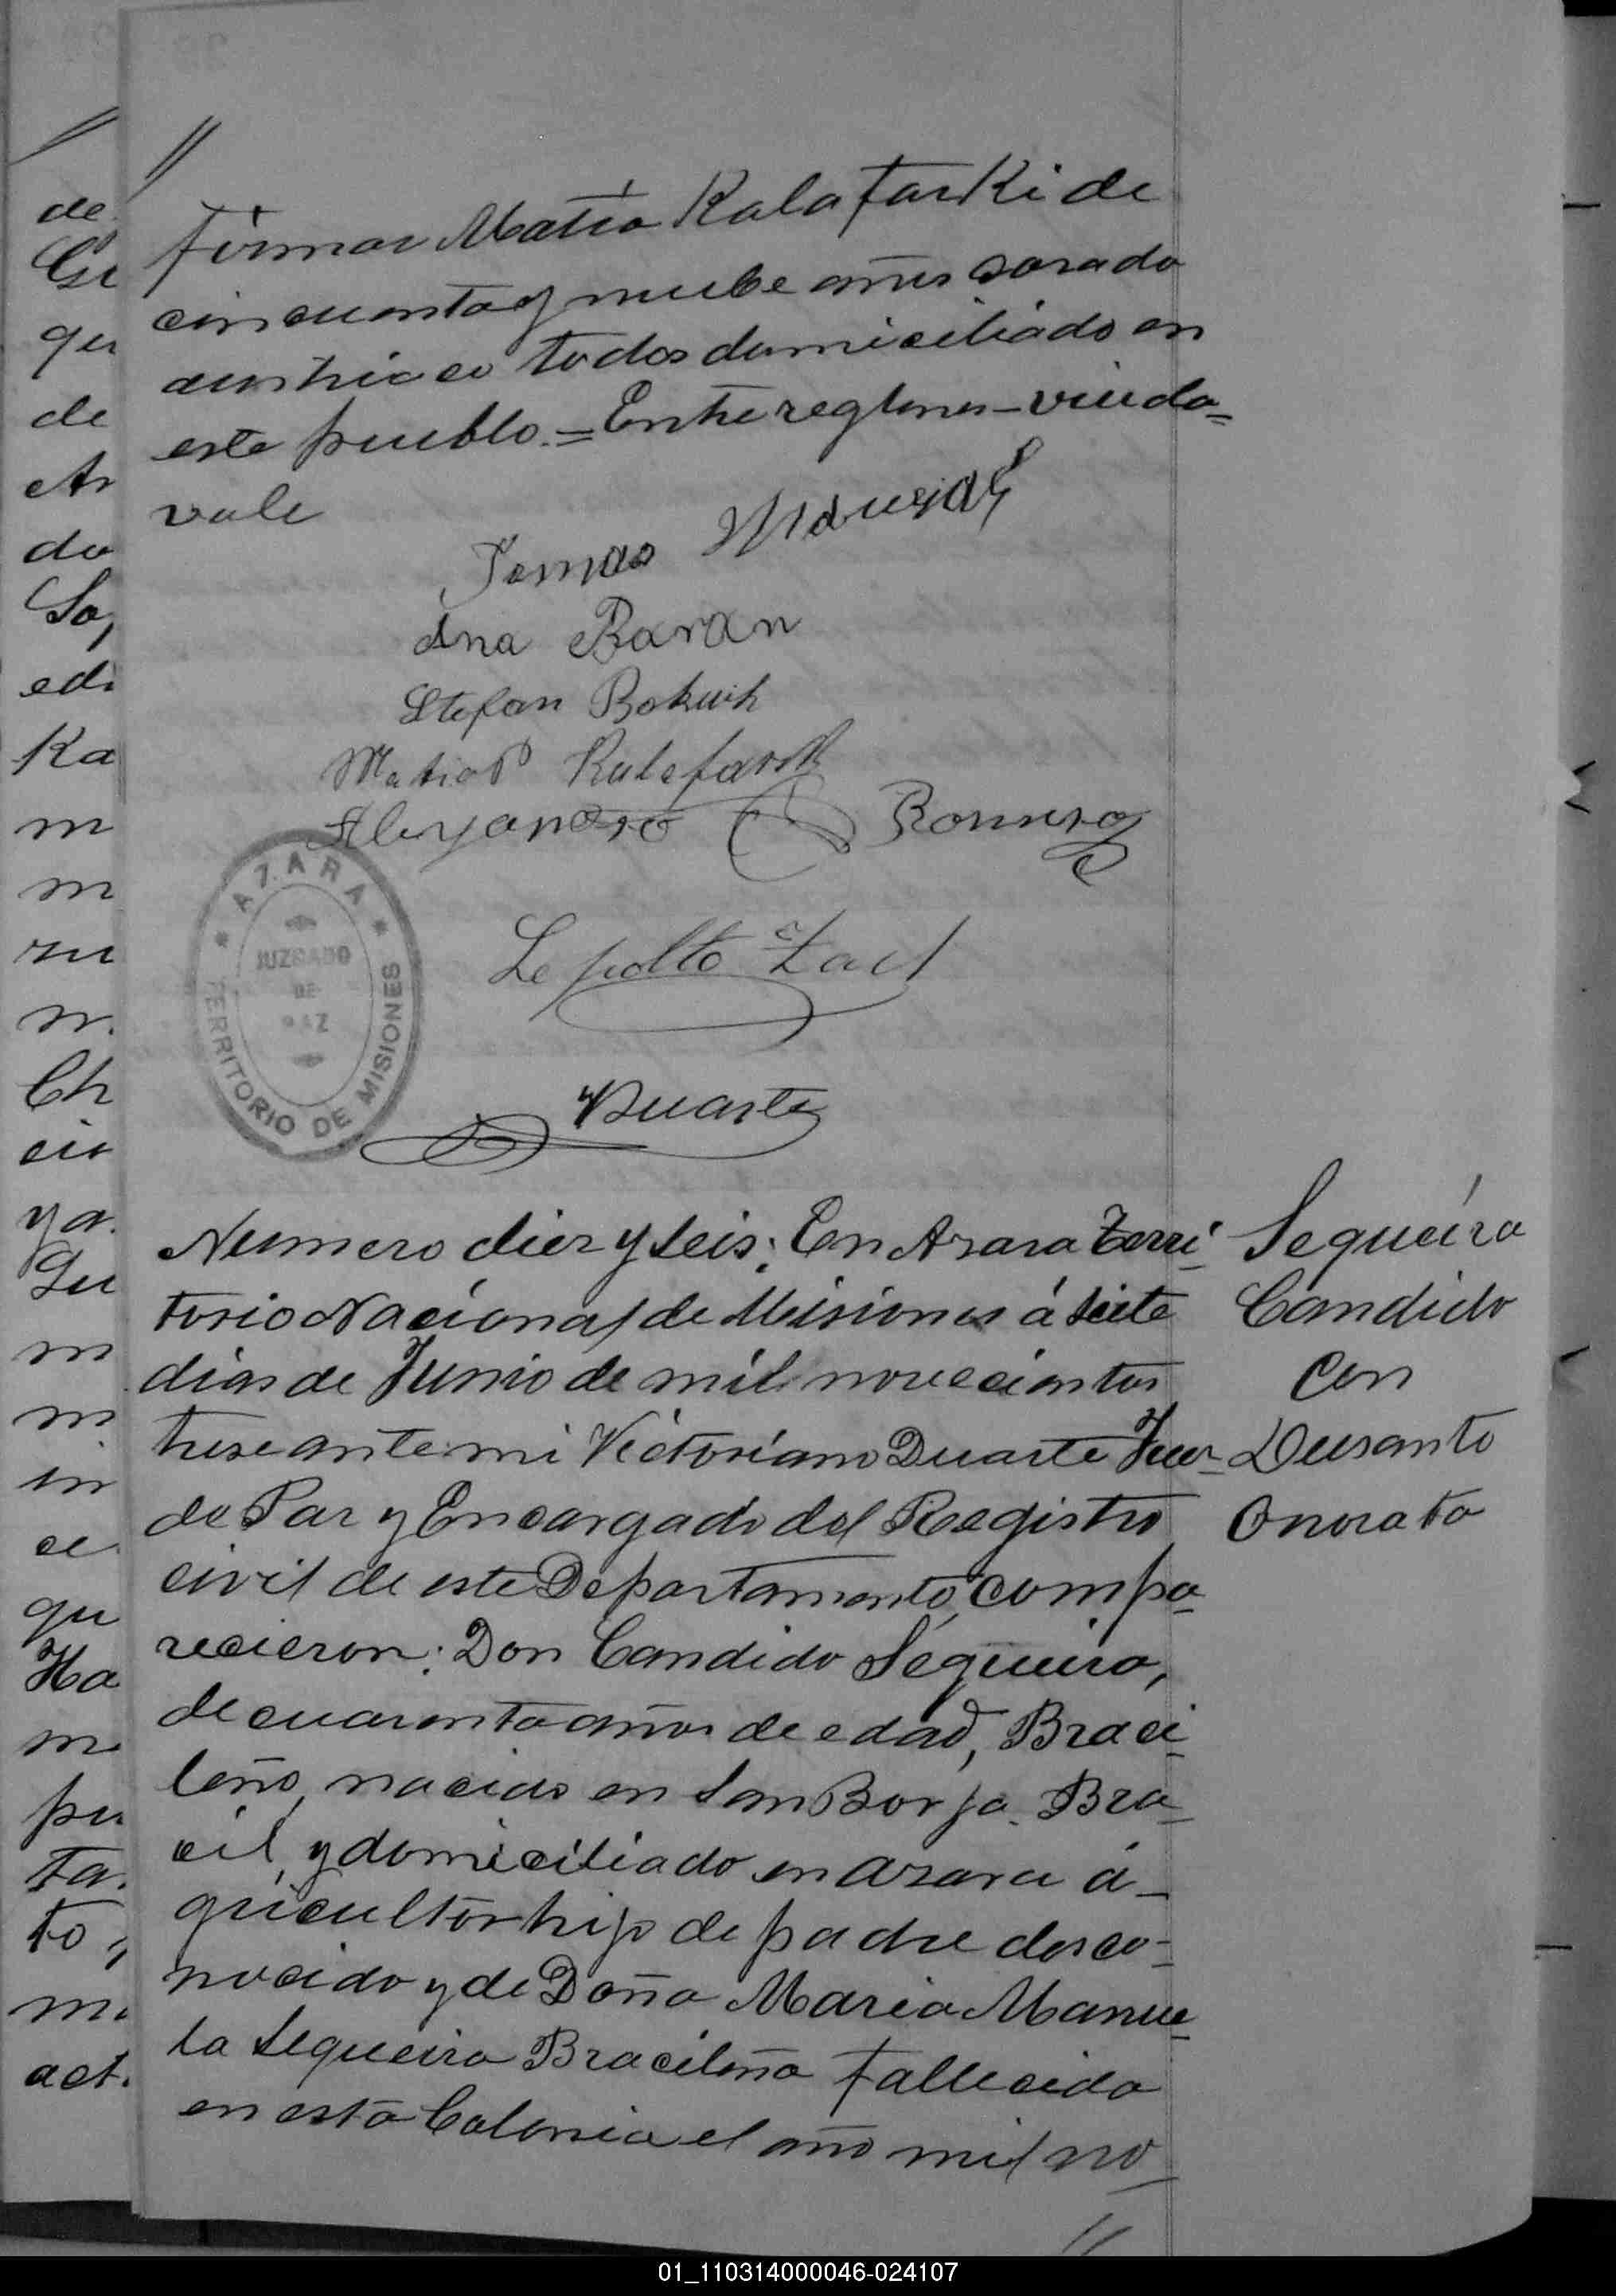 //
firmar Matio Kalafarki de
cincuenta y nuebe años casado
austriaco todos domiciliado en
este pueblo.=Entre reglones-viuda=
vale
Tomas
Ana Baran
Stefan Bokwih
Matias Kalefarsk
Aleyandro Romero
Duarte
* AZARA *
JUZGADO
DE
PAZ
TERRITORIO DE MISIONES
Numero diez y seis; En Azara Terri-
torio Nacional de Misiones á siete
dias de Junio de mil novecientos
trese ante mi Victoriano Duarte Juez
de Paz y Encargado del Registro
civil de este Departamento, compa-
recieron: Don Candido Sequeira,
de cuarenta años de edad, Braci-
leño, nacido en San Borja. Bra-
cil, y domiciliado en Azara á-
gricultor hijo de padre desco-
nocido y de Doña Maria Manue-
la Sequeira Bracileña fallecida
en esta Colonia el año mil no-
//
Sequeira
Candido
con
Dusanto
Onorata
de
qu
de
do
edi
Ka
m
m
Ch
m
m
in
qu
Ha
pu
ta.
to
act.
01_110314000046-024107